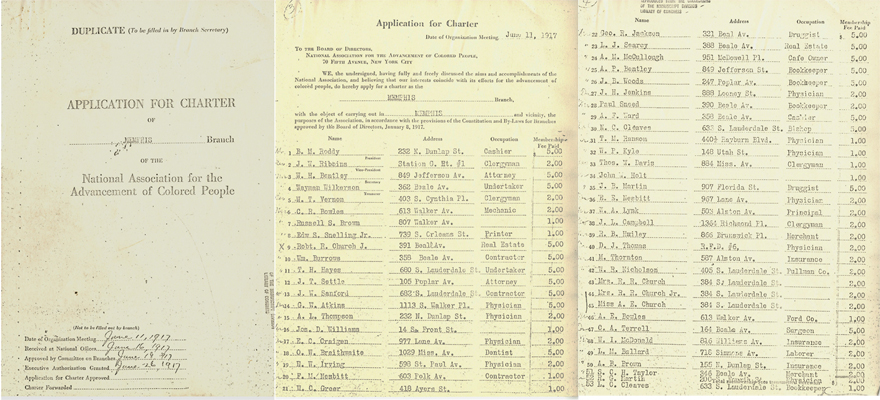 DUPLICATE (To be filled in by Branch Secretary)
APPLICATION FOR CHARTER
OF
MEMPHIS Branch
OF THE
National Association for the
Advancement of Colored People
(Not to be filled out by branch)
Date of Organization Meeting June 11, 1917
Received at National Office
Approved by Committee on Branches
Executive Authorization Granted
Application for Charter Approved
Charter Forwarded
Application for Charter
Date of Organization Meeting, June 11, 1917
TO THE BOARD OF DIRECTORS,
NATIONAL ASSOCIATION FOR THE ADVANCEMENT OF COLORED PEOPLE,
70 FIFTH AVENUE, NEW YORK CITY
WE, the undersigned, having fully and freely discussed the aims and accomplishments of the
National Association, and believing that our interests coincide with its efforts for the advancement of
colored people, do hereby apply for a charter as the
MEMPHIS Branch,
with the object of carrying out in MEMPHIS and vicinity, the
purposes of the Association, in accordance with the provisions of the Constitution and By-Laws for Branches
approved by the Board of Directors, January 8, 1917.
Name Address Occupation Membership Fee Paid
1 B. M. Roddy 232 N. Dunlap St. Cashier 5.00
President
2 J. T. Station C. Rt. #1 Clergyman 2.00
Vice-President
3 W. H. Bentley 849 Jefferson Av. Attorney 5.00
Secretary
4 Wayman Wilkerson 362 Beale Av. Undertaker 5.00
Treasurer
5 M. T. Vernon 403 S. Cynthia Pl. Clergyman 2.00
6 C. R. Bowles 613 Walker Av. Mechanic 2.00
7 Russell S. Brown 807 Walker Av. 1.00
8 Edw R. Snelling Jr. 739 S. Orleans St. Printer 1.00
9 Robt. R. Church J. 391 Beale Av. Real Estate 5.00
10 Wm. Burrows 358 Beale Av. Contractor 5.00
11 T. H. Hayes 680 S. Lauderdale St. Undertaker 5.00
12 J. T. Settle 105 Poplar Av. Attorney 5.00
13 J. W. Sanford 682 S. Lauderdale St. Contractor 5.00
14 C. W. Atkins 1113 S. Walker Pl. Physician 5.00
15 A. L. Thompson 232 N. Dunlap St. Physician 2.00
16 Jos. D. Williams 14 S. Front St. 1.00
17 E. C. Craigen 977 Lane Av. Physician 2.00
18 Braithwaite 1029 Miss. Av. Dentist 5.00
19 Irving 598 St. Paul Av. Physician 2.00
20 Nesbitt 603 Polk Av. Contractor 1.00
21 Greer 418 Ayers St. 1.00
Name Address Occupation Membership Fee Paid
22 Geo. R. Jackson 321 Beal Av. Druggist $ 5.00
23 J. Searcy 388 Beale Av. Real Estate 5.00
24 A. M. McCullough 951 McDowell Pl. Cafe Owner 5.00
25 A. F. Bentley 849 Jefferson St. Bookkeeper 5.00
26 J. R. Woods 247 Poplar Av. Bookkeeper 5.00
27 J. H. Jenkins 888 Looney St. Physician 2.00
28 Paul Sneed 390 Beale Av. Bookkeeper 2.00
29 A. F. Ward 358 Beale Av. Cashier 5.00
30 E. C. Cleaves 633 S. Lauderdale St. Bishop 5.00
31 T. M. 440½ Rayburn Blvd. Physician 1.00
32 Kyle 148 Utah St. Physician 1.00
33 Thos. W. Davis 884 Miss. Av. Clergyman 1.00
34 John Holt 1.00
35 J. B. Martin 907 Florida St. Druggist 5.00
36 Nesbitt 967 Lane Av. Physician 2.00
37 A. Lynk 503 Alston Av. Principal 2.00
38 J. L. Campbell 1364 Richmond Pl. Clergyman 2.00
39 Bailey 866 Brunswick Pl. Merchant 2.00
40 D. J. Thomas R.F.D. #6, Physician 2.00
41 M. Thornton 587 Alston Av. Insurance 2.00
42 R. Nicholson 405 S. Lauderdale St. Pullman Co. 2.00
43 Mrs. R. R. Church 384 S. Lauderdale St. 2.00
Mrs. R. R. Church Jr. 384 S. Lauderdale St. 2.00
Miss A. E. Church 384 S. Lauderdale St. 2.00
A. B. Bowles 613 Walker Av. Ford Co. 1.00
C. A. Terrell 164 Beale Av. Surgeon 5.00
M. I. McDonald 816 Williams Av. Insurance 2.00
Ballard 718 Simmons Av. Laborer 2.00
A. B. Brown 155 N. Dunlap St. Insurance 2.00
Taylor Beale Av. Merchant 2.00
Physician 2.00
53 Cleaves 633 S. Lauderdale St. Bookkeeper 1.00